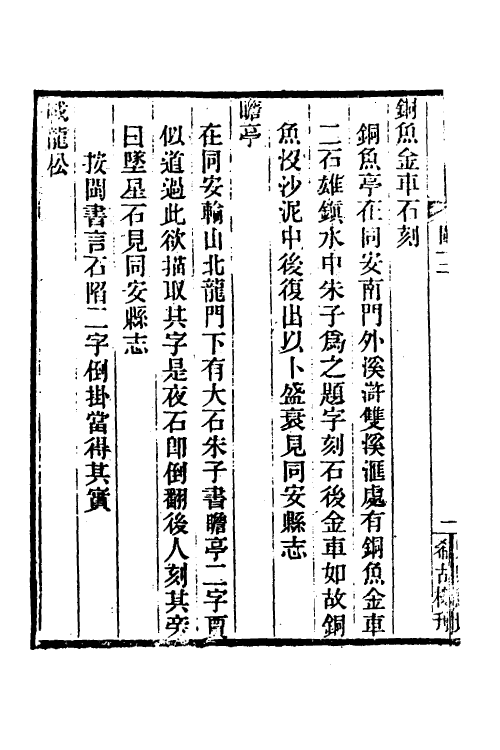 銅魚金車石刻
銅魚亭在同安南門外溪滸雙溪滙處有銅魚金車
二石雄鎮水中朱子爲之題字刻石後金車如故銅
魚沒沙泥中後復出以卜盛衰見同安縣志
瞻亭
在同安輪山北龍門下有大石朱子書瞻亭二字賈
似道過此欲搨取其字是夜石卽倒翻後人刻其旁
曰墜星石見同安縣志
按閩書言石陷二字倒掛當得其實
龍松